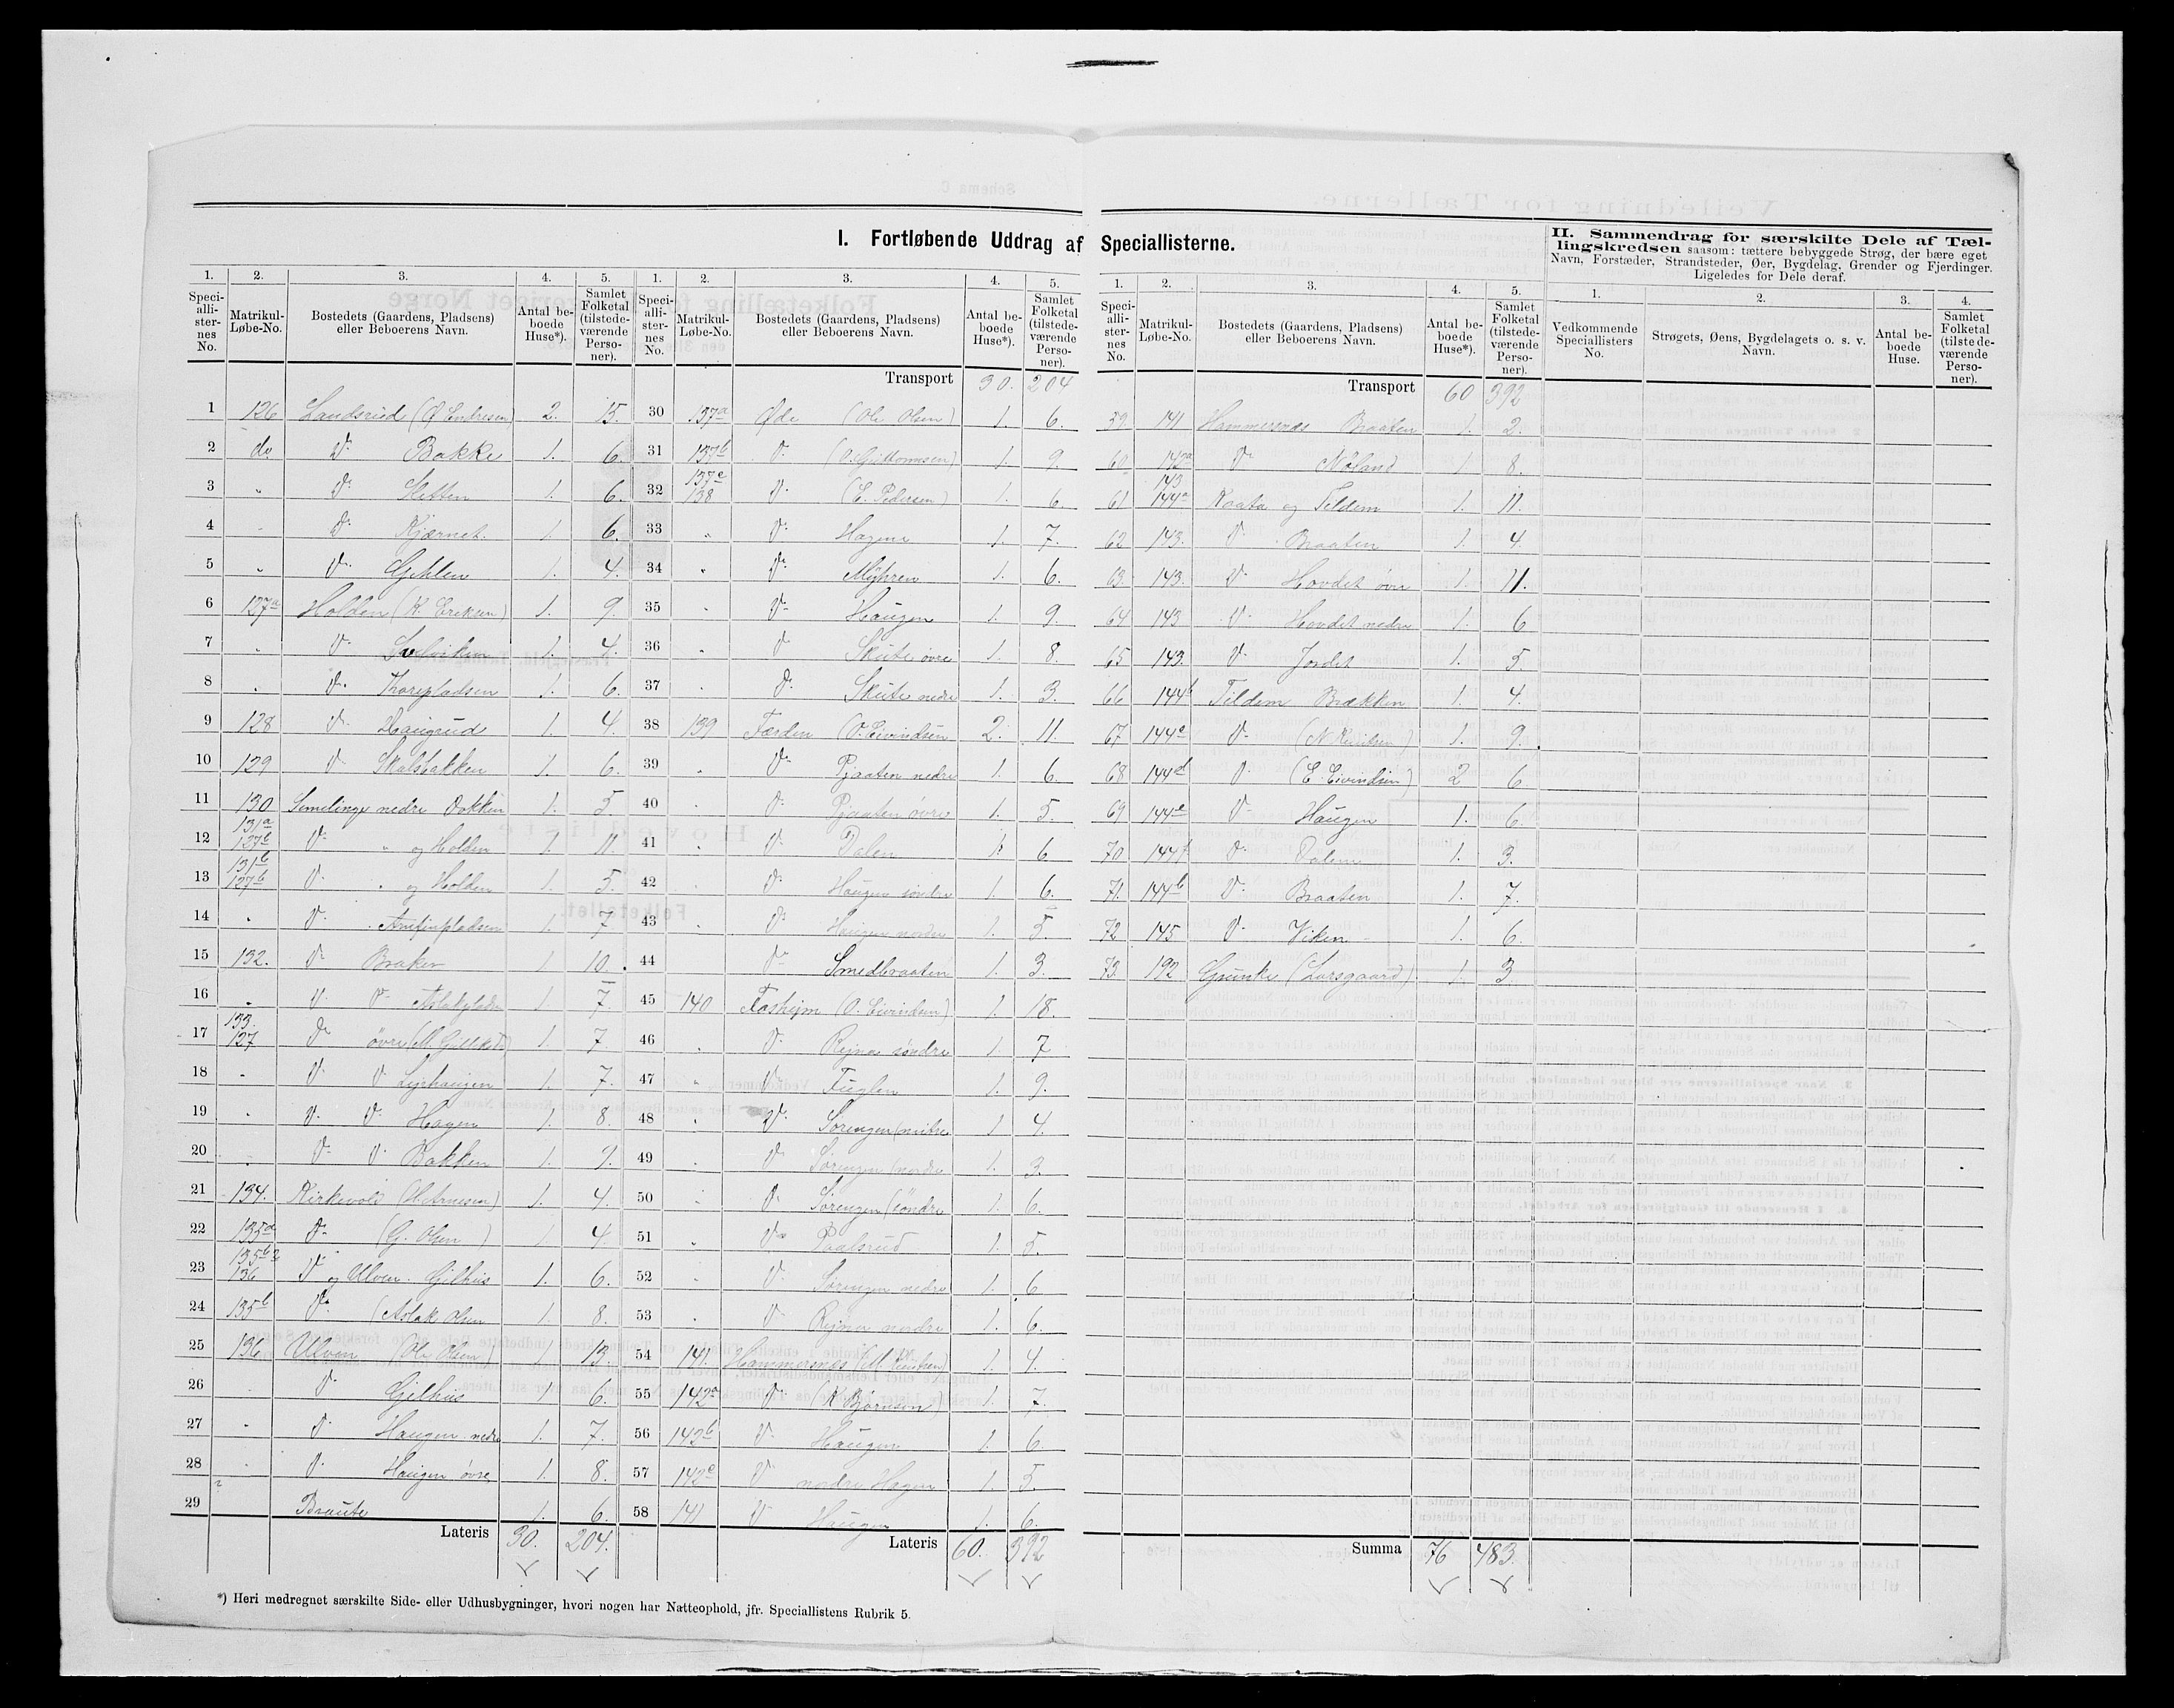 I. Fortløbende Uddrag af Speciallisterne.
II. Sammendrag for særskilte Dele af Tæl-
lingskredsen saasom: tættere bebyggede Strøg, der bære eget
Navn, Forstæder, Strandsteder, Øer, Bygdelag, Grender og Fjerdinger.
Ligeledes for Dele deraf.
1. 2. 3. 4. 5.
Speciallisternes No. Matrikul-Løbe-No. Bostedets (Gaardens, Pladsens) eller Beboerens Navn. Antal beboede Huse*). Samlet Folketal (tilstedeværende Personer).
1 126 Landsrud (Ø. Endresen) 2. 15.
2 do. Do Bakke 1. 6.
3 " Do Sletten 1. 6.
4 Do Kjærnet 1. 6.
5 " Do 1. 4.
6 127a Holden (K. Eriksen) 1. 9.
7 " Do 1. 4.
8 Do Thorepladsen 1. 6.
9 128 Do Haugrud 1. 4.
10 129 Do Skalsbakken 1. 6.
11 130 Semelinge nedre Dokken 1. 5
12 131a 127b Do " og Holden 1. 11.
13 131b 127b Do " og Holden 1. 5.
14 " Do Arnfinpladsen 1. 7
15 132. Do Braker 1 10.
16 " Do Do Aslakplads 1. 7.
17 133. 127 Do øvre 1. 7
18 Do Do 1. 7.
19 Do Do Hagen 1. 8.
20 Do Do Bakken 1. 9.
21 134. Kirkevold (H. Arnesen) 1. 4.
22 135a Do (G. Olsen) 1. 4
23 135b2 136 Do og Ulven Gilhus 1. 6.
24 135b Do (Aslak Olsen 1. 8.
25 136 Ulven (Ole Olsen) 1 13.
26 Do Gilhus 1 6.
27 Do Haugen nedre 1. 7.
28 Do Haugen øvre 1. 8.
29 Braute 1. 6.
Lateris 30. 204.
1. 2. 3. 4. 5.
Speciallisternes No. Matrikul-Løbe-No. Bostedets (Gaardens, Pladsens) eller Beboerens Navn. Antal beboede Huse*). Samlet Folketal (tilstedeværende Personer).
Transport 30. 204
30 137a Øde (Ole Olsen) 1. 6.
31 137b Do (O. Guttormsen) 1. 9.
32 137c 138 Do (E. Pedersen) 1. 6
33 " Do Hagen 1. 7.
34 " Do Myhren 1. 6.
35 Do Haugen 1. 9.
36 Do Skute øvre 1. 8.
37 Do Skute nedre 1. 3.
38 139 Færden (O. Eivindsen 2. 11.
39 Do Pjaaten nedre 1. 6.
40 Do Pjaaten øvre 1. 5.
41 Do Dalen 1. 6
42 Do Haugen søndre 1. 6.
43 Do Haugen nordre 1. 5.
44 Do Smedbraaten 1. 3.
45 140 Fosheim (O. Eivindsen) 1. 18.
46 Do søndre 1. 7
47 Do Fuglen 1. 9.
48 Do Sørengen (midtre 1 4.
49 Do Sørengen (nordre 1. 3
50 Do Sørengen (søndre 1. 6.
51 Do Paalsrud 1. 5.
52 Do Sørengen nedre 1. 6
53 Do nordre 1. 6.
54 141. Hammersnæs 1. 4.
55 142a Do (K Bjørnsen) 1. 7.
56 142b Do Haugen 1. 6.
57 142c Do nedre Hagen 1. 5.
58 141 Do Haugen 1. 6.
Lateris 60. 392
1. 2. 3. 4. 5.
Speciallisternes No. Matrikul-Løbe-No. Bostedets (Gaardens, Pladsens) eller Beboerens Navn. Antal beboede Huse*). Samlet Folketal (tilstedeværende Personer).
Transport 60 392
59 141 Hammersnæs Braaten 1. 2.
60 142a Do Nøland 1 8.
61 143 144a Raata og Tildem 1. 11.
62 143. Do Braaten 1. 4.
63 143. Do Hovdet øvre 1. 11.
64 143 Do Hovdet nedre 1. 6
65 143. Do Jordet 1. 5.
66 144b Tildem Brækken 1. 4.
67 144c Do 1. 9.
68 144d Do (E. Eivindsen) 2 6.
69 144e Do Haugen 1. 6.
70 144f Do Dalen 1. 3.
71. 144b Do Braaten 1. 7.
72 145 Do Viken 1. 6.
73. 192 Grunke (Larsgaard) 1. 3
Summa 76 483.
1. 2. 3. 4.
Vedkommende Speciallisters No. Strøgets, Øens, Bygdelagets o. s. v. Navn. Antal beboede Huse. Samlet Folketal (tilstedeværende Personer).
*) Heri medregnet særskilte Side- eller Udhusbygninger, hvori nogen har Natteophold, jfr. Speciallistens Rubrik 5.